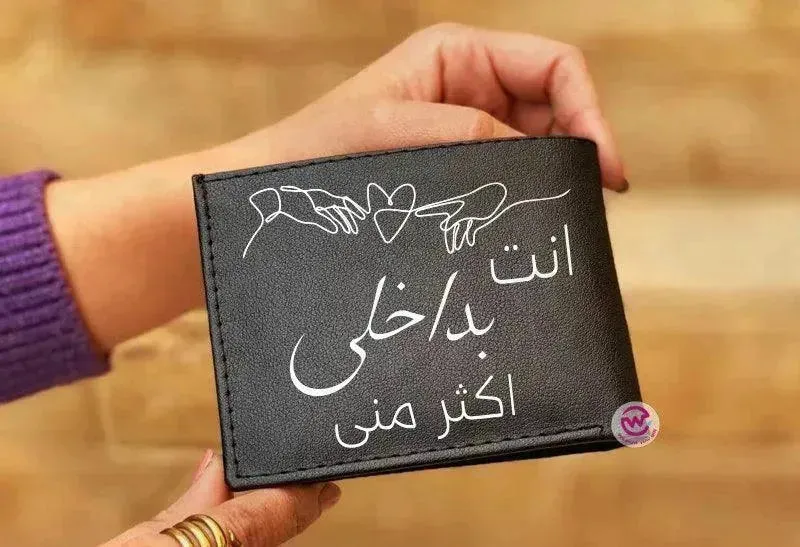 انت
بداخلى
اكثر منى